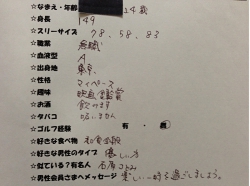 ☆なまえ・年齢 24歳
☆身長 149
☆スリーサイズ 78. 58. 83
☆職業 無職
☆血液型 A
☆出身地 東京
☆性格 マイペース
☆趣味 映画鑑賞
☆お酒 飲めます
☆タバコ 吸いません
☆ゴルフ経験 有・
☆好きな食べ物 和食全般
☆好きな男性のタイプ 優しい方
☆似ている?有名人 石原さとみ
☆男性会員さまへメッセージ 楽しい一時を過ごしましょう。